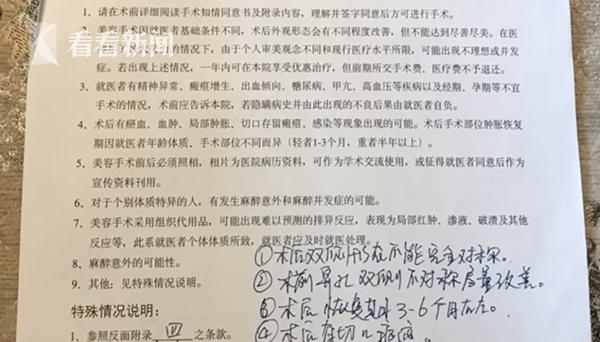 看看新闻
1、请在术前详细阅读手术知情同意书及附录内容，理解并签字同意后方可进行手术。
2、美容手术因就医者基础条件不同，术后外观形态会有不同程度改善，但不能达到尽善尽美。在医
的情况下，由于个人审美观念不同和现行医疗水平所限，可能出现不理想或并发
症。若出现上述情况，一年内可在本院享受优惠治疗，但前期所交手术费、医疗费不予退还。
3、就医者有精神异常、瘢痕增生、出血倾向、糖尿病、甲亢、高血压等疾病以及经期、孕期等不宜
手术的情况，术前应告诉本院，若隐瞒病史并由此出现的不良后果由就医者自负。
4、术后有瘀血、血肿、局部肿胀、切口存留瘢痕、感染等现象出现的可能。术后手术部位肿胀恢复
期因就医者年龄体质、手术部位不同而异（轻者1-3个月，重者半年以上）。
5、美容手术前后必须照相，相片为医院病历资料，可作为学术交流使用，或征得就医者同意后作为
宣传资料刊用。
6、对于个别体质特异的人，有发生麻醉意外和麻醉并发症的可能。
7、美容手术采用组织代用品，可能出现难以预测的排异反应，表现为局部红肿、渗液、破溃及其他
反应等，此系就医者个体体质所致，就医者应及时就医处理。
8、麻醉意外的可能性。
9、其他：见特殊情况说明。
①术后双侧形态不能完全对称。
②术前鼻孔双侧不对称尽量改善。
特殊情况说明：
③术后恢复期3-6个月左右。
1、参照反面附录 四 之条款。
④术后有切口瘢痕。